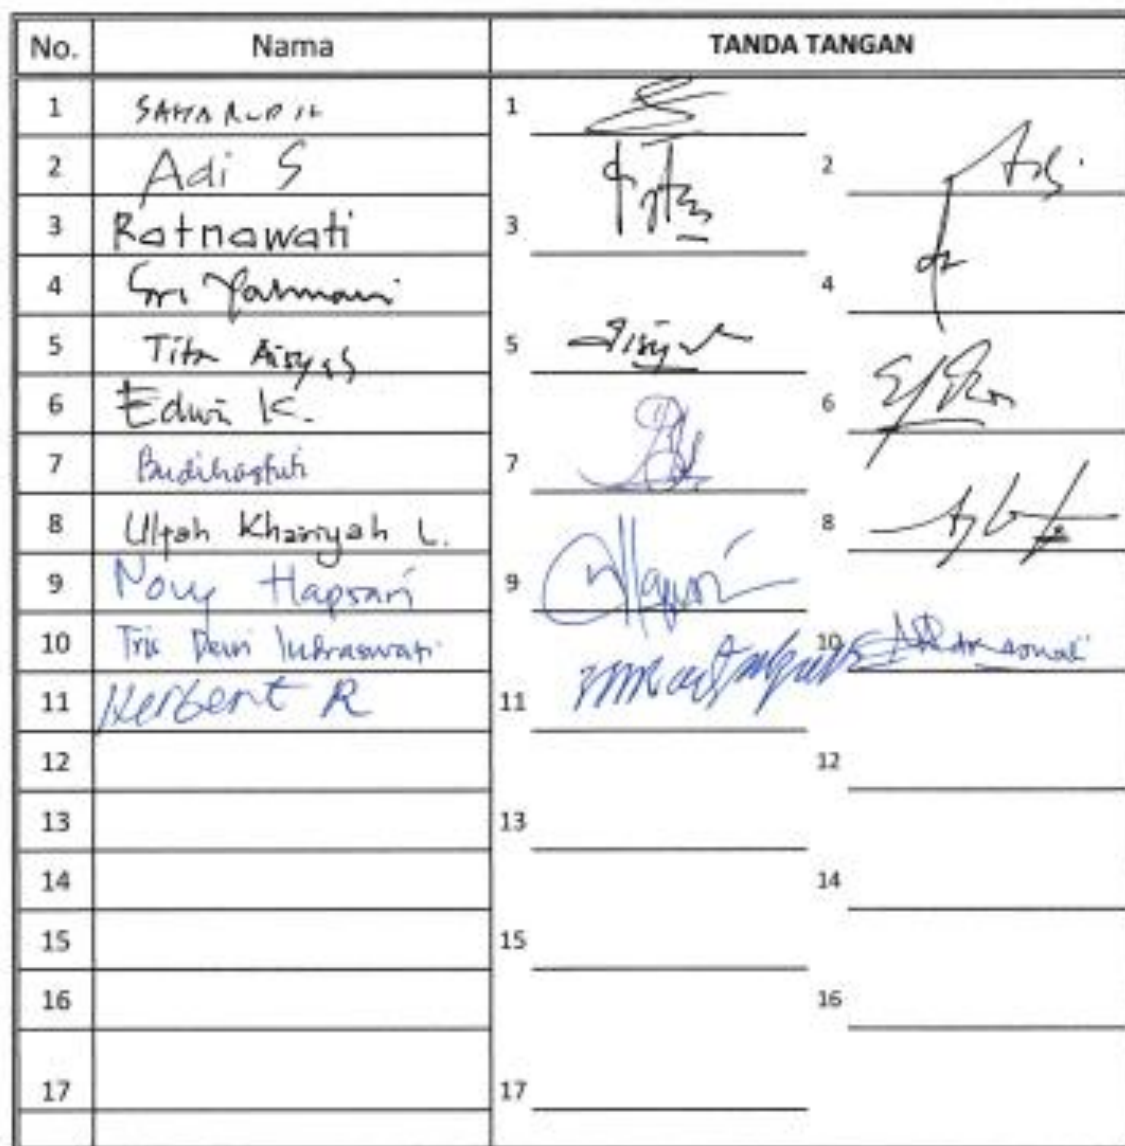 No. Nama TANDA TANGAN
1 SAHARUDIN 1
2 Adi S 2 Adi
3 Ratnawati 3
4 Sri 4
5 Tita Aisyah 5 Aisyah
6 Edwin K. 6
7 Budihastuti 7
8 Ulfah Khairiyah L. 8
9 Novy Hapsari 9 Hapsari
10 Tris Dewi Indraswati 10
11 Herbert R 11
12 12
13 13
14 14
15 15
16 16
17 17